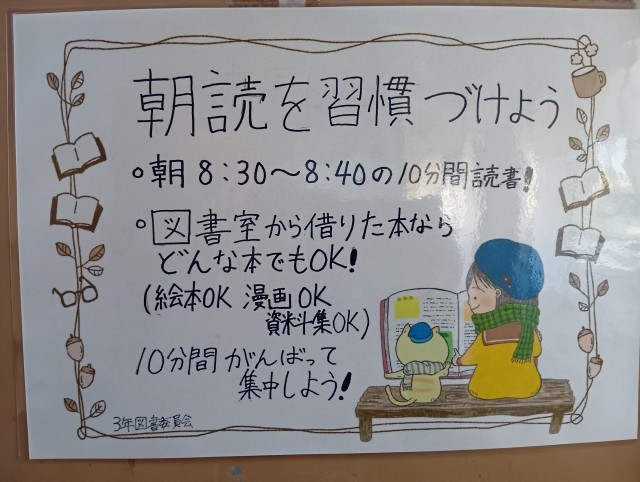 朝読を習慣づけよう
○朝8:30〜8:40の10分間読書!
○図書室から借りた本なら
どんな本でもOK!
(絵本OK 漫画OK
資料集OK)
10分間がんばって
集中しよう!
3年図書委員会